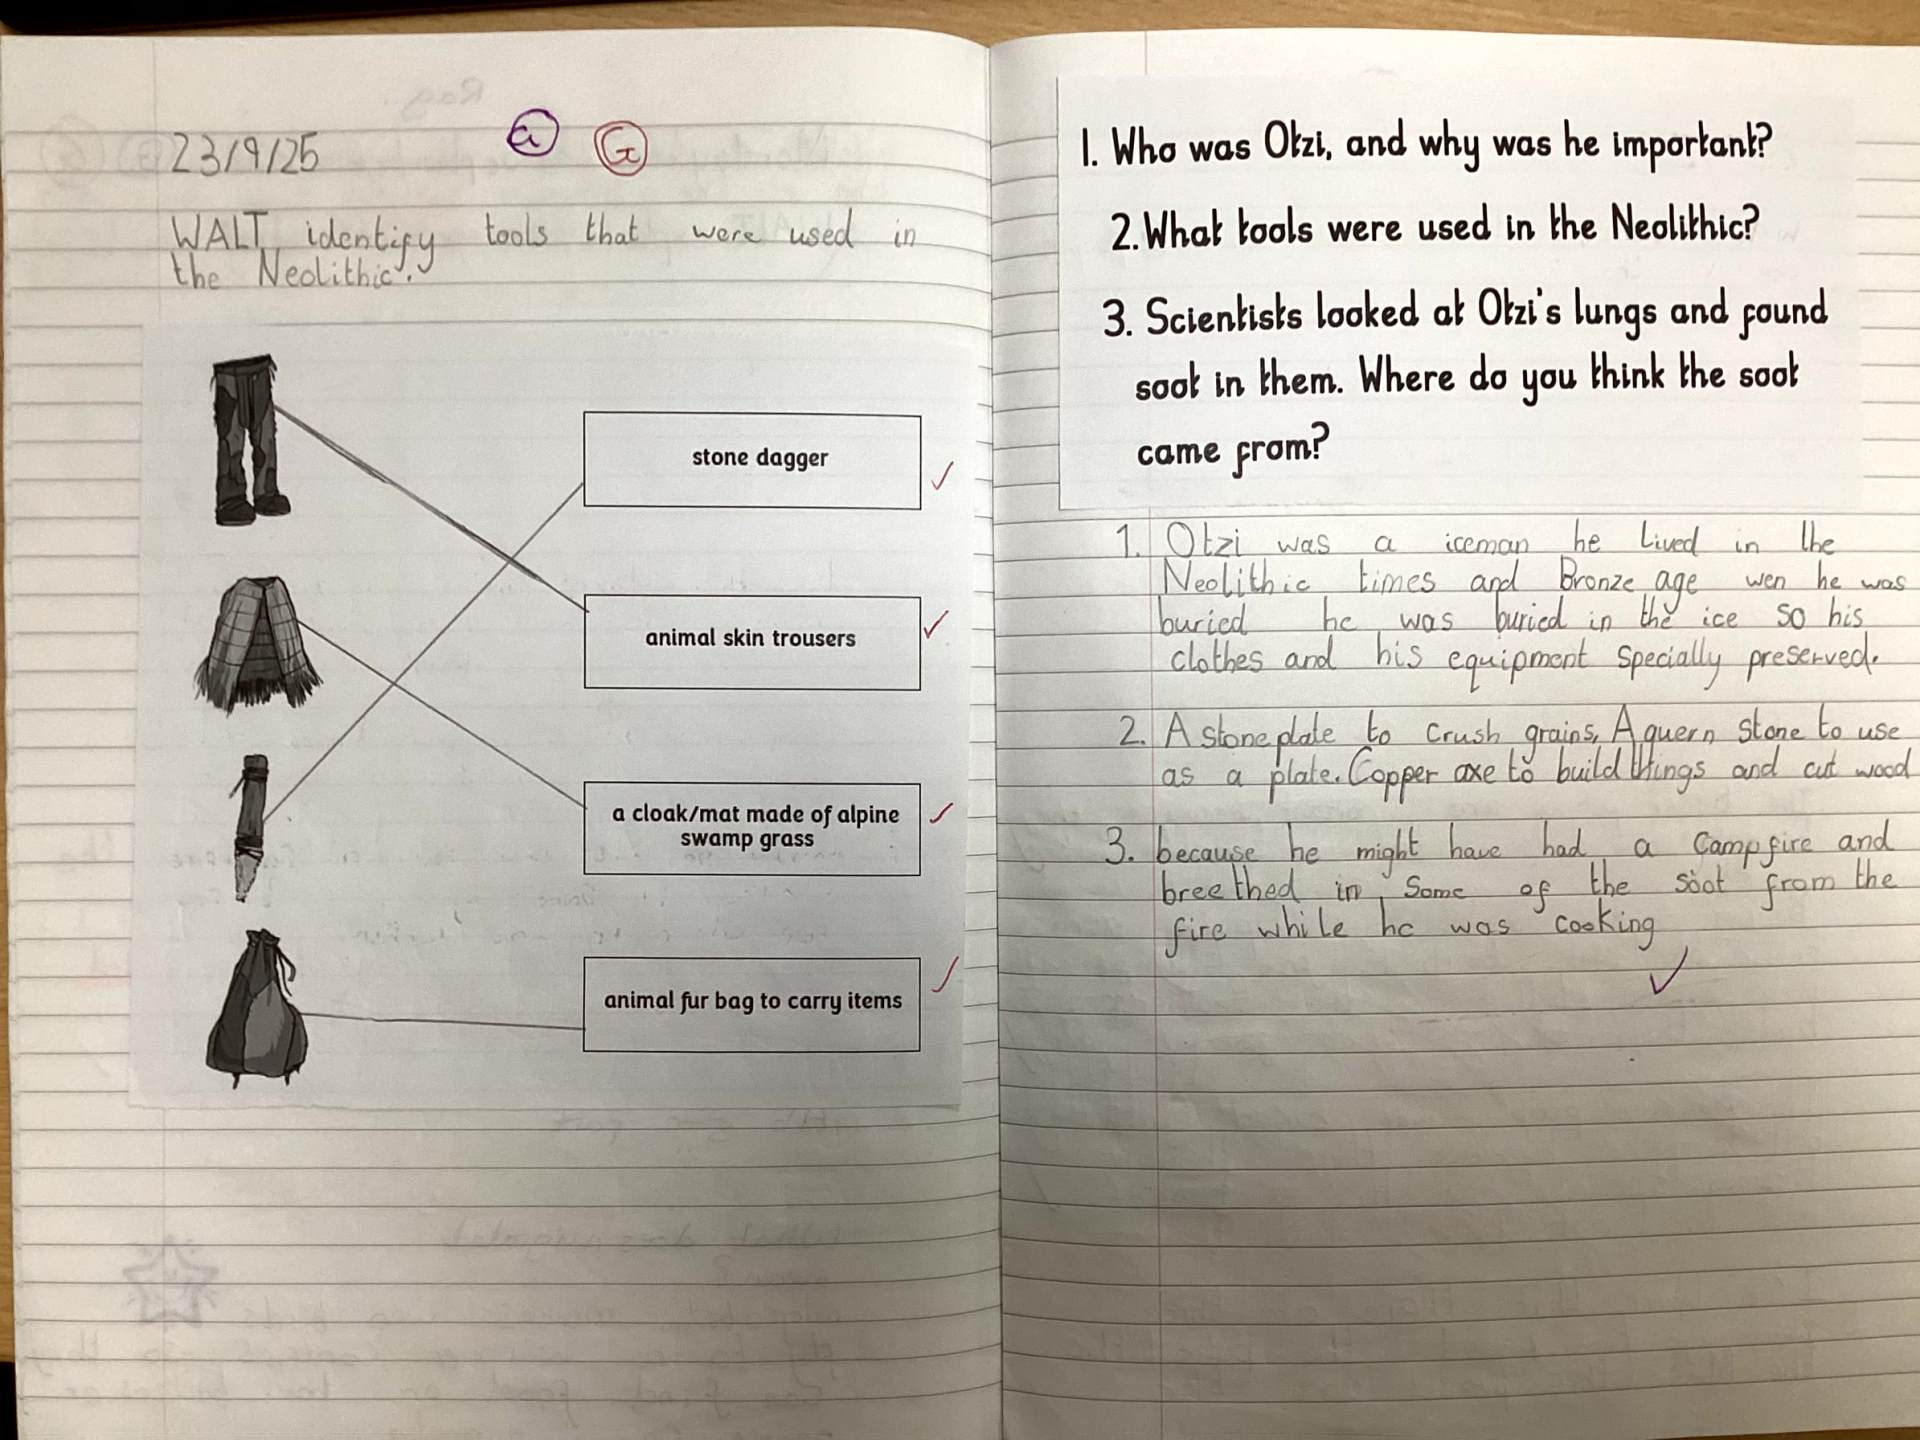 23/9/25
G G
WALT identify tools that were used in
the Neolithic.
stone dagger
animal skin trousers
a cloak/mat made of alpine
swamp grass
animal fur bag to carry items
1. Who was Otzi, and why was he important?
2. What tools were used in the Neolithic?
3. Scientists looked at Otzi's lungs and found
soot in them. Where do you think the soot
came from?
1. Otzi was a iceman he lived in the
Neolithic times and Bronze age wen he was
buried he was buried in the ice so his
clothes and his equipment specially preserved.
2. A stone plate to crush grains, A quern stone to use
as a plate. Copper axe to build things and cut wood
3. because he might have had a campfire and
breethed in some of the soot from the
fire while he was cooking